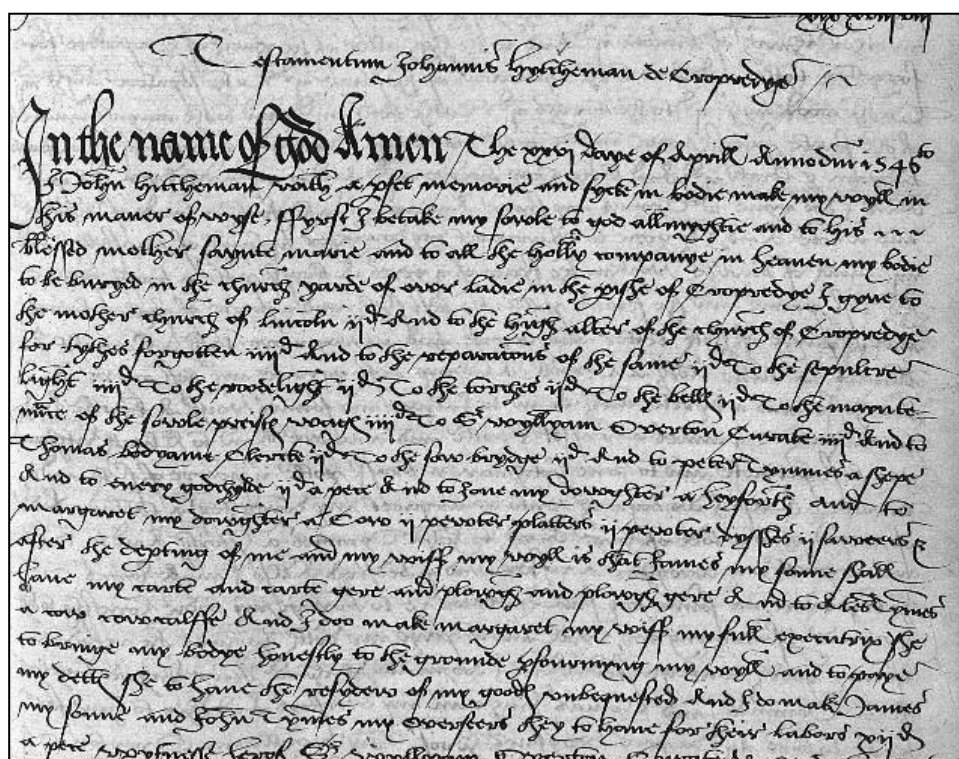 Testamentum Johannis Hytcheman de Cropredye
In the name of god Amen The xxvi daye of Aprill Anno dm 1546to
I John Hitcheman with a pfet memorie and sycke in bodie make my wyll in
this maner of wyse, ffyrst I betake my sowle to god allmyghtie and to his
blessed mother saynte marie and to all the holly companye in heaven my bodie
to be buryed in the church yarde of owr ladie in the pishe of Cropredye I gyve to
the mother church of lincoln iid And to the hygh alter of the church of Cropredye
for tythes forgotten iiiid And to the reparacons of the same iid To the sepulcre
light iiiid To the roodelight iid To the torches iid To the bells iid To the maynte
nnce of the sowle preistes wages iiiid To Sr wyllyam Overton Curate iiiid And to
Thomas bodyame Clercke iid To the sow brydge iid And to peter Tymmes a shepe
And to every godchylde iid a pece And to Jone my dowghter a heyforth and to
margaret my dowghter a Cow ii pewter platters ii pewter dysshes ii sawcers &
after the depting of me and my wiff my wyll is that James my sonne shall
have my carte and carte gere and plowgh and plowgh gere And to Tymes
a cow cowcalffe And I doo make margaret my wiff my full executrix she
to bringe my bodye honestly to the grounde pfourmyng my wyll and to paye
my detts she to have the resydew of my goods unbequested And I do make James
my sonne and John Tymes my Overseers they to have for their labors xiid
a pece wytnesse herof Sr wyllyam Overton Curate